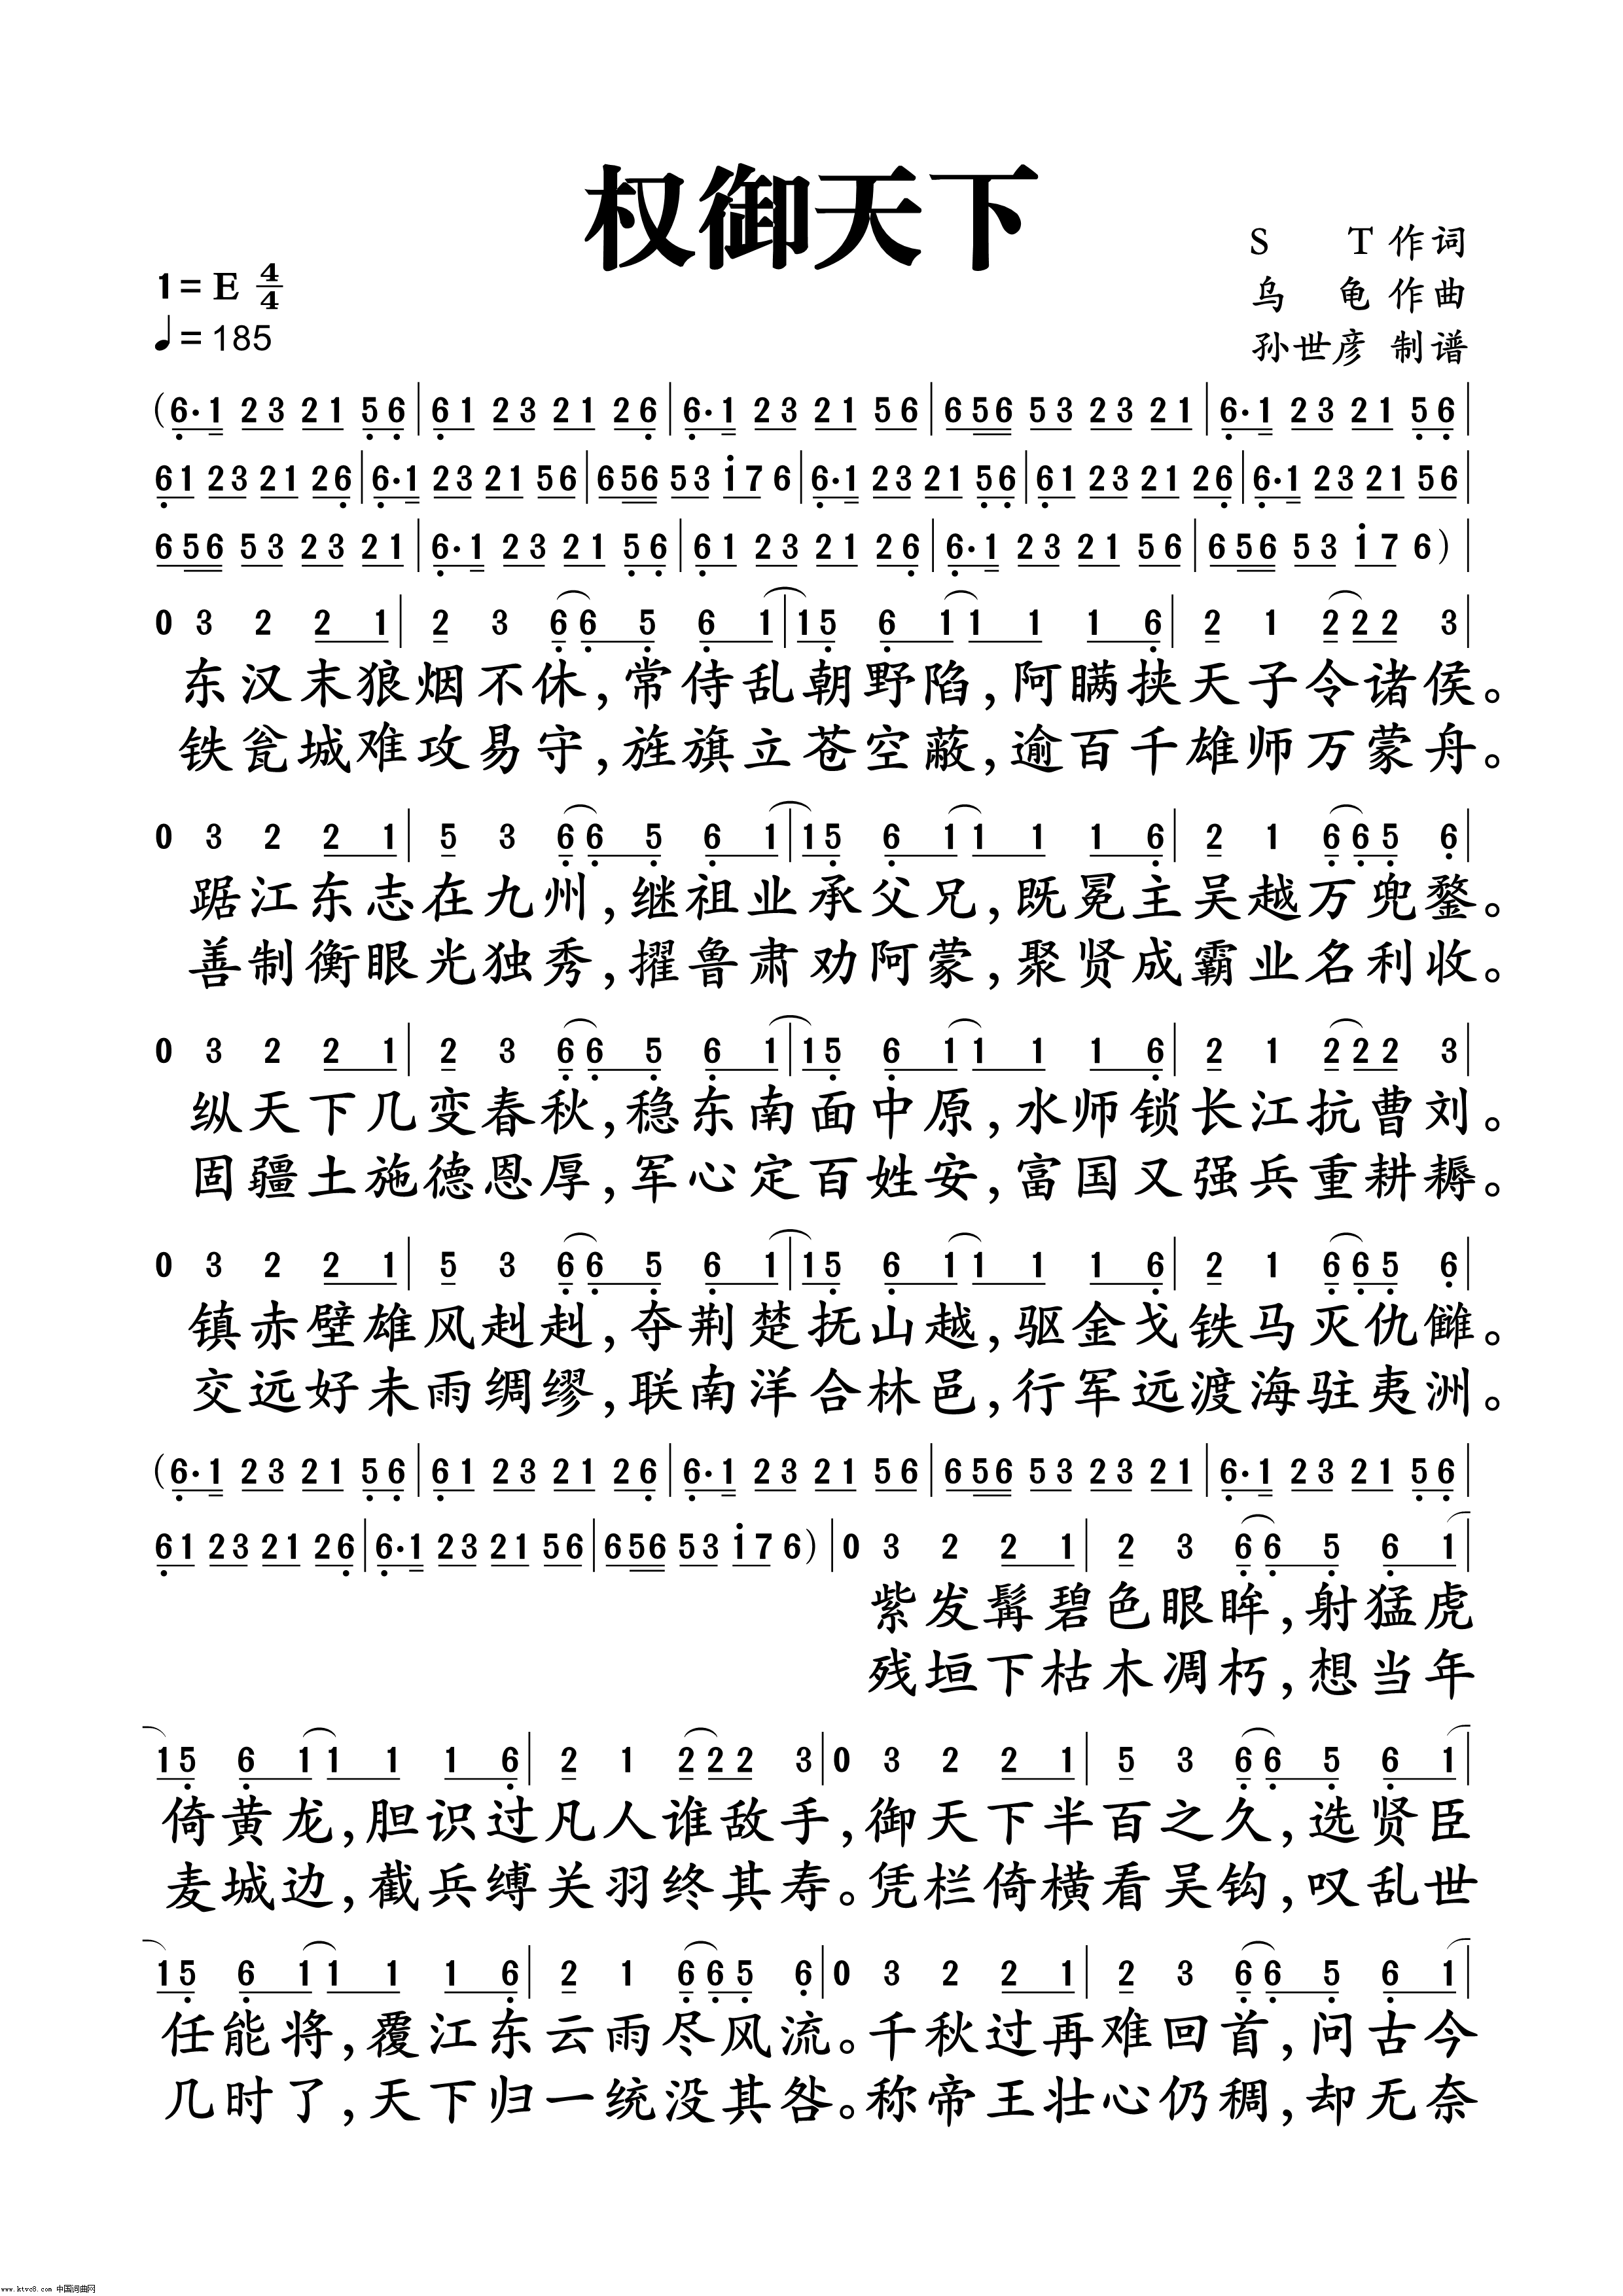 权御天下
S T 作词
1=E 4/4
乌 龟 作曲
♩=185
孙世彦 制谱
(6·1 23 21 56|61 23 21 26|6·1 23 21 56|656 53 23 21|6·1 23 21 56|
61 23 21 26|6·1 23 21 56|656 53 i7 6|6·1 23 21 56|61 23 21 26|6·1 23 21 56|
656 53 23 21|6·1 23 21 56|61 23 21 26|6·1 23 21 56|656 53 i7 6)|
0 3 2 2 1|2 3 66 5 6 1|15 6 11 1 1 6|2 1 222 3|
东汉末狼烟不休,常侍乱朝野陷,阿瞒挟天子令诸侯。
铁瓮城难攻易守,旌旗立苍空蔽,逾百千雄师万蒙舟。
0 3 2 2 1|5 3 66 5 6 1|15 6 11 1 1 6|2 1 665 6|
踞江东志在九州,继祖业承父兄,既冕主吴越万兜鍪。
善制衡眼光独秀,擢鲁肃劝阿蒙,聚贤成霸业名利收。
0 3 2 2 1|2 3 66 5 6 1|15 6 11 1 1 6|2 1 222 3|
纵天下几变春秋,稳东南面中原,水师锁长江抗曹刘。
固疆土施德恩厚,军心定百姓安,富国又强兵重耕耨。
0 3 2 2 1|5 3 66 5 6 1|15 6 11 1 1 6|2 1 665 6|
镇赤壁雄风赳赳,夺荆楚抚山越,驱金戈铁马灭仇雠。
交远好未雨绸缪,联南洋合林邑,行军远渡海驻夷洲。
(6·1 23 21 56|61 23 21 26|6·1 23 21 56|656 53 23 21|6·1 23 21 56|
61 23 21 26|6·1 23 21 56|656 53 i7 6)|0 3 2 2 1|2 3 66 5 6 1|
紫发髯碧色眼眸,射猛虎
残垣下枯木凋朽,想当年
15 6 11 1 1 6|2 1 222 3|0 3 2 2 1|5 3 66 5 6 1|
倚黄龙,胆识过凡人谁敌手,御天下半百之久,选贤臣
麦城边,截兵缚关羽终其寿。凭栏倚横看吴钩,叹乱世
15 6 11 1 1 6|2 1 665 6|0 3 2 2 1|2 3 66 5 6 1|
任能将,覆江东云雨尽风流。千秋过再难回首,问古今
几时了,天下归一统没其咎。称帝王壮心仍稠,却无奈
www.ktvc8.com 中国词曲网